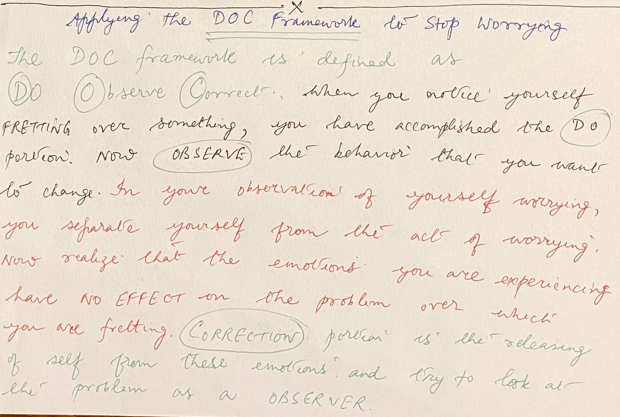 x
Applying the DOC Framework to Stop Worrying
The DOC framework is defined as
DO Observe Correct. When you notice yourself
FRETTING over something, you have accomplished the DO
portion. Now OBSERVE the behavior that you want
to change. In your observation of yourself worrying,
you separate yourself from the act of worrying.
Now realize that the emotions you are experiencing
have NO EFFECT on the problem over which
you are fretting. CORRECTION portion is the releasing
of self from these emotions and try to look at
the problem as a OBSERVER.